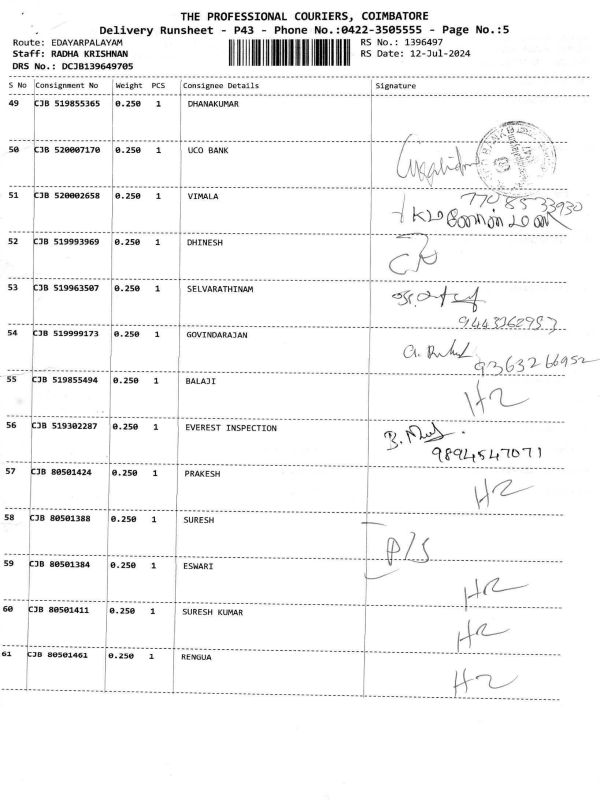 THE PROFESSIONAL COURIERS, COIMBATORE
Delivery Runsheet - P43 - Phone No.:0422-3505555 - Page No.:5
Route: EDAYARPALAYAM RS No.: 1396497
Staff: RADHA KRISHNAN RS Date: 12-Jul-2024
DRS No.: DCJB139649705
S No Consignment No Weight PCS Consignee Details Signature
49 CJB 519855365 0.250 1 DHANAKUMAR
50 CJB 520007170 0.250 1 UCO BANK
7708533930
51 CJB 520002658 0.250 1 VIMALA
52 CJB 519993969 0.250 1 DHINESH
53 CJB 519963507 0.250 1 SELVARATHINAM
9443362953
54 CJB 519999173 0.250 1 GOVINDARAJAN
9363266952
55 CJB 519855494 0.250 1 BALAJI HR
56 CJB 519302287 0.250 1 EVEREST INSPECTION
9894547071
57 CJB 80501424 0.250 1 PRAKESH HR
58 CJB 80501388 0.250 1 SURESH P/S
59 CJB 80501384 0.250 1 ESWARI HR
60 CJB 80501411 0.250 1 SURESH KUMAR HR
61 CJB 80501461 0.250 1 RENGUA HR